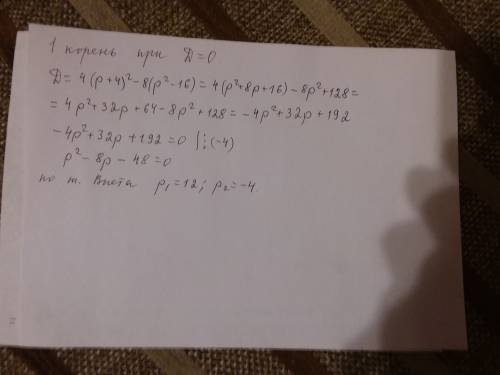 1 корень при D=0
D= 4(p+4)²-8(p²-16)=4(p²+8p+16)-8p²+128=
=4p²+32p+64-8p²+128=-4p²+32p+192
-4p²+32p+192=0 |:(-4)
p²-8p-48=0
по т. Виета p₁=12; p₂=-4.